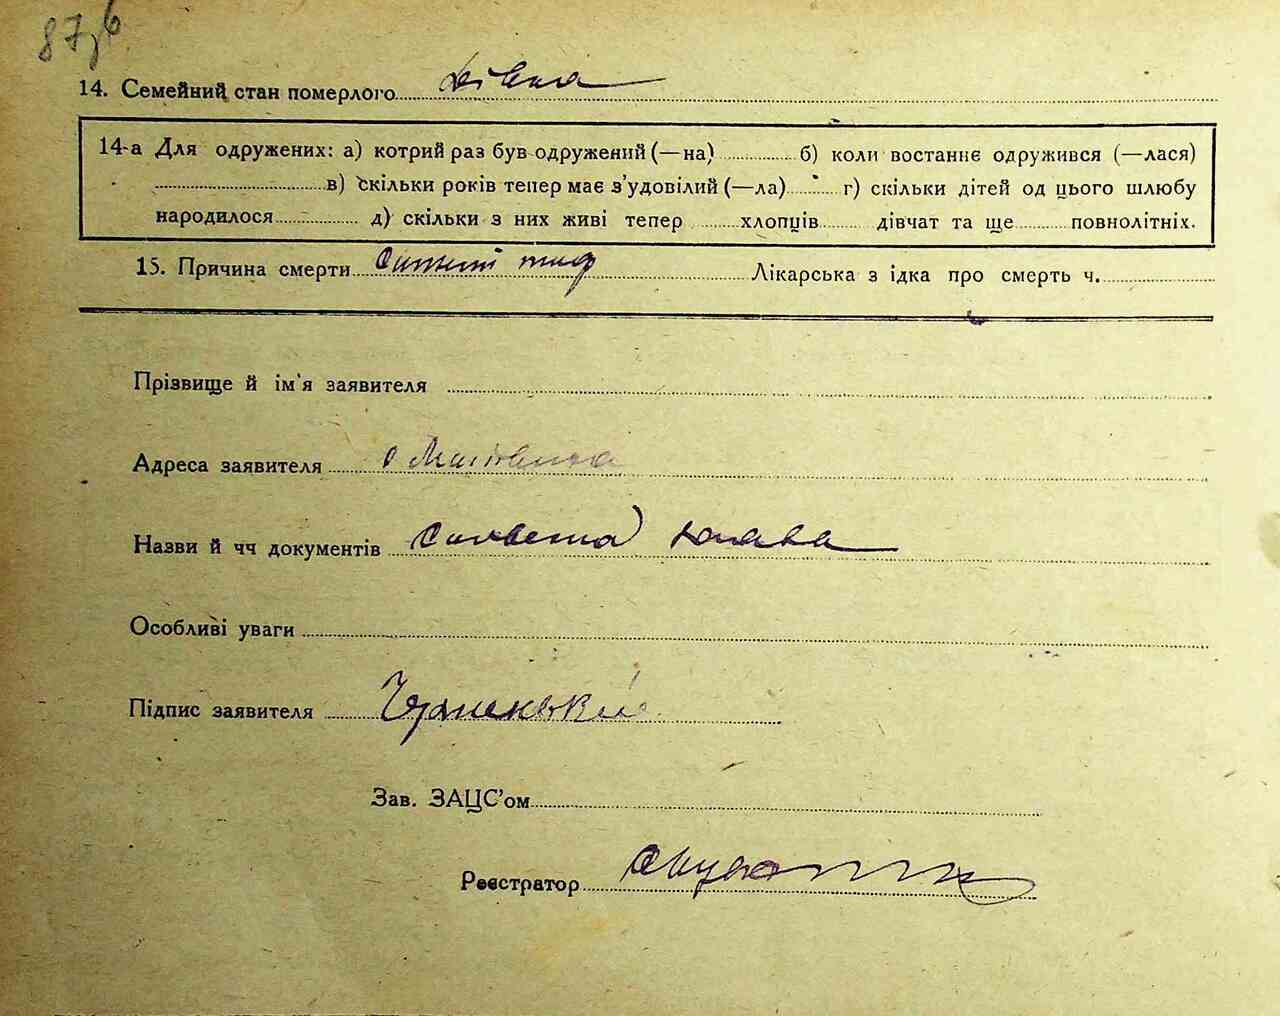 87б
14. Семейний стан померлого дівка
14-а Для одружених: а) котрий раз був одружений (—на) б) коли востаннє одружився (—лася)
в) скільки років тепер має з'удовілий (—ла) г) скільки дітей од цього шлюбу
народилося д) скільки з них живі тепер хлопців дівчат та ще повнолітніх.
15. Причина смерти тиф Лікарська з ідка про смерть ч.
Прізвище й ім'я заявителя
Адреса заявителя
Назви й чч документів
Особливі уваги
Підпис заявителя
Зав. ЗАЦС'ом
Реєстратор